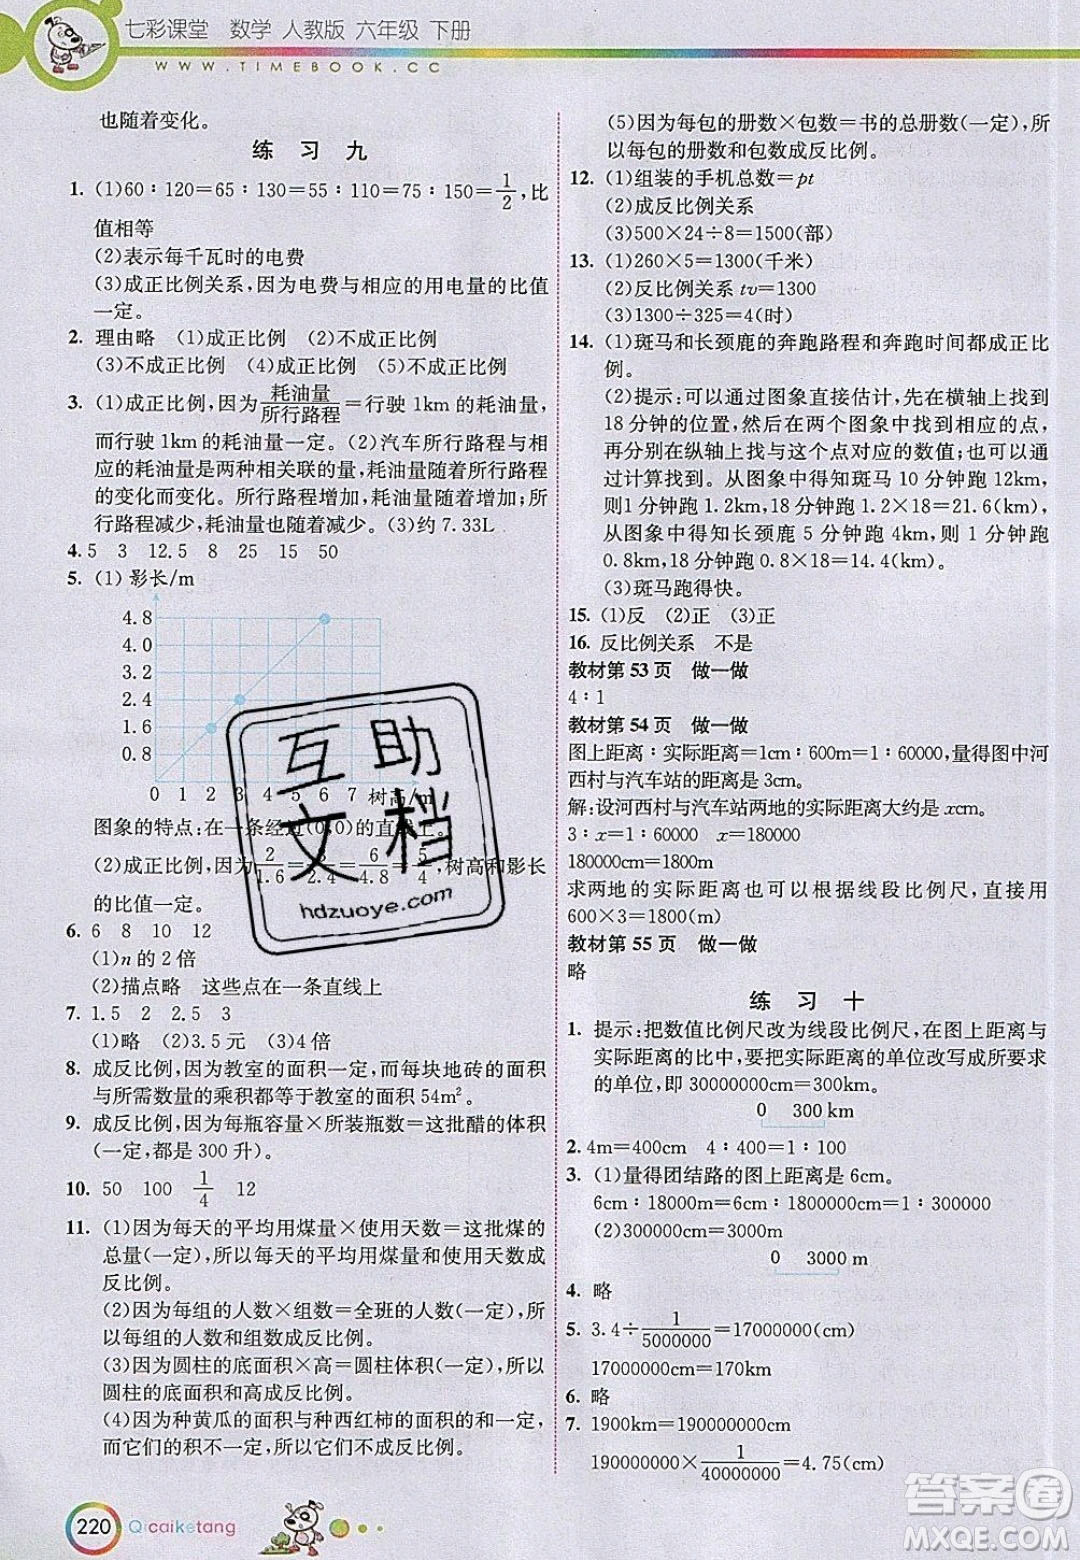 七彩课堂 数学 人教版 六年级 下册
WWW.TIMEBOOK.CC
也随着变化。
练 习 九
1. (1)60∶120=65∶130=55∶110=75∶150=1/2,比
值相等
(2)表示每千瓦时的电费
(3)成正比例关系,因为电费与相应的用电量的比值
一定。
2. 理由略 (1)成正比例 (2)不成正比例
(3)不成正比例 (4)成正比例 (5)不成正比例
3. (1)成正比例,因为耗油量/所行路程=行驶1km的耗油量,
而行驶1km的耗油量一定。(2)汽车所行路程与相
应的耗油量是两种相关联的量,耗油量随着所行路程
的变化而变化。所行路程增加,耗油量也随着增加;所
行路程减少,耗油量也随着减少。(3)约7.33L
4. 5 3 12.5 8 25 15 50
5. (1) 影长/m
4.8
4.0
3.2
2.4
1.6
0.8
0 1 2 3 4 5 6 7 树高/m
图象的特点:在一条经过(0,0)的直线上。
(2)成正比例,因为2/1.6=3/2.4=6/4.8=5/4,树高和影长
的比值一定。
6. 6 8 10 12
(1)n的2倍
(2)描点略 这些点在一条直线上
7. 1.5 2 2.5 3
(1)略 (2)3.5元 (3)4倍
8. 成反比例,因为教室的面积一定,每块地砖的面积
与所需数量的乘积都等于教室的面积54m²。
9. 成反比例,因为每瓶容量×所装瓶数=这批醋的体积
(一定,都是300升)。
10. 50 100 1/4 12
11. (1)因为每天的平均用煤量×使用天数=这批煤的
总量(一定),所以每天的平均用煤量和使用天数成
反比例。
(2)因为每组的人数×组数=全班的人数(一定),所
以每组的人数和组数成反比例。
(3)因为圆柱的底面积×高=圆柱体积(一定),所以
圆柱的底面积和高成反比例。
(4)因为种黄瓜的面积与种西红柿的面积的和一定,
而它们的积不一定,所以它们不成反比例。
220 Qicaiketang
(5)因为每包的册数×包数=书的总册数(一定),所
以每包的册数和包数成反比例。
12. (1)组装的手机总数=pt
(2)成反比例关系
(3)500×24÷8=1500(部)
13. (1)260×5=1300(千米)
(2)反比例关系 tv=1300
(3)1300÷325=4(时)
14. (1)斑马和长颈鹿的奔跑路程和奔跑时间成正比
例。
(2)提示:可以通过图象直接估计,先在横轴上找到
18分钟的位置,然后在两个图象中找到相应的点,
再在纵轴上找到与这个点对应的数值;也可以通
过计算找到。从图象中得知斑马10分钟跑12km,
则1分钟跑1.2km,18分钟跑1.2×18=21.6(km);
从图象中得知长颈鹿5分钟跑4km,则1分钟跑
0.8km,18分钟跑0.8×18=14.4(km)。
(3)斑马跑得快。
15. (1)反 (2)正 (3)正
16. 反比例关系 不是
教材第53页 做一做
4∶1
教材第54页 做一做
图上距离∶实际距离=1cm∶600m=1∶60000,量得图中河
西村与汽车站的距离是3cm。
解:设河西村与汽车站两地的实际距离大约是xcm。
3∶x=1∶60000 x=180000
180000cm=1800m
求两地的实际距离也可以根据线段比例尺,直接用
600×3=1800(m)
教材第55页 做一做
略
练 习 十
1. 提示:把数值比例尺改为线段比例尺,在图上距离与
实际距离的比中,要把实际距离的单位改写成所要求
的单位,即30000000cm=300km。
0 300 km
2. 4m=400cm 4∶400=1∶100
3. (1)量得团结路的图上距离是6cm。
6cm∶18000m=6cm∶1800000cm=1∶300000
(2)300000cm=3000m
0 3000 m
4. 略
5. 3.4÷1/5000000=17000000(cm)
17000000cm=170km
6. 略
7. 1900km=190000000cm
190000000×1/40000000=4.75(cm)
互助
文档
hdzuoye.com
答案圈
MXQE.COM